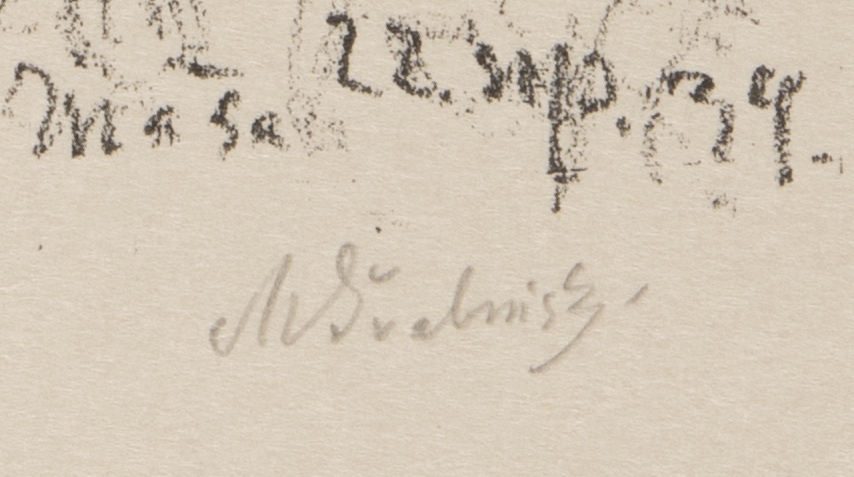 Masa 22 srp. 39.
MŠvabinský